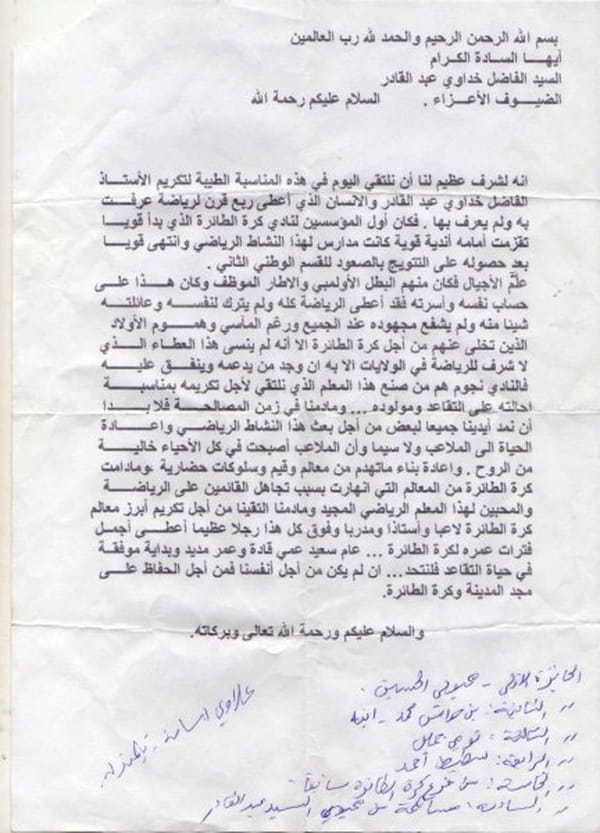 بسم الله الرحمن الرحيم والحمد لله رب العالمين
أيهـا السـادة الكـرام
السيد الفاضل خداوي عبد القادر
الضيـوف الأعـزاء . السلام عليكم رحمة الله
انه لشرف عظيم لنا أن نلتقي اليوم في هذه المناسبة الطيبة لتكريم الأستـاذ
الفاضل خداوي عبد القادر والانسان الذي أعطى ربع قرن لرياضة عرفـت
به ولم يعرف بها . فكان أول المؤسسين لنادي كرة الطائرة الذي بدأ قويـا
تقزمت أمامه أندية قوية كانت مدارس لهذا النشاط الرياضي وانتهى قويـا
بعد حصوله على التتويج بالصعود للقسم الوطني الثاني .
علَّم الأجيال فكان منهم البطل الأولمبي والاطار الموظف وكان هـذا علـى
حساب نفسه وأسرته فقد أعطى الرياضة كله ولم يترك لنفسـه وعائلتـه
شيئا منه ولم يشفع مجهوده عند الجميع ورغم المآسي وهمـوم الأولاد
الذين تخلى عنهم من أجل كرة الطائرة الا أنه لم ينسى هذا العطـاء الـذي
لا شرف للرياضة في الولايات الا به ان وجد من يدعمه وينفـق عليـه
فالنادي نجوم هم من صنع هذا المعلم الذي نلتقي لأجل تكريمه بمناسبـة
احالته على التقاعد ومولوده ... ومادمنا في زمن المصالحـة فلا بـدا
أن نمد أيدينا جميعا لبعض من أجل بعث هذا النشاط الرياضـي واعـادة
الحياة الى الملاعب ولا سيما وأن الملاعب أصبحت في كل الأحياء خاليـة
من الروح . واعادة بناء ماتهدم من معالم وقيم وسلوكات حضارية ،ومادامت
كرة الطائرة من المعالم التي انهارت بسبب تجاهل القائمين على الرياضـة
والمحبين لهذا المعلم الرياضي المجيد ومادمنا التقينا من أجل تكريم أبرز معالم
كرة الطائرة لاعبا وأستاذا ومدربا وفوق كل هذا رجلا عظيما أعطـى أجمـل
فترات عمره لكرة الطائرة ... عام سعيد عمي قادة وعمر مديد وبداية موفقة
في حياة التقاعد فلنتحد... ان لم يكن من أجل أنفسنا فمن أجل الحفاظ علـى
مجد المدينة وكرة الطائرة.
والسلام عليكم ورحمة الله تعالى وبركاته.
الجائزة الأولى -
// الثانية : بن محمد -
// الثالثة :
// الرابعة : أحمد
// الخامسة : من كرة الطائرة سابقا
// السادسة : من السيد عبد القادر
علاوي اسامة -